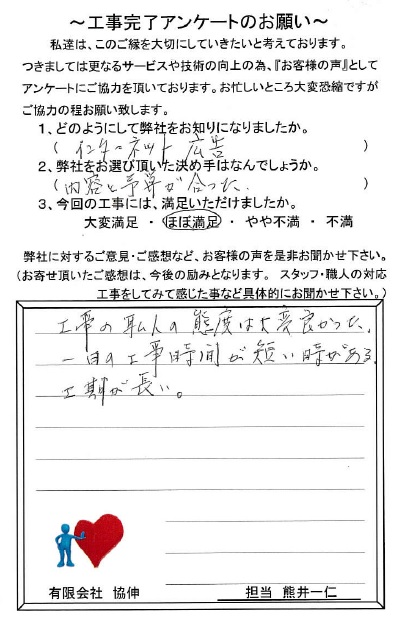 ～工事完了アンケートのお願い～
私達は、このご縁を大切にしていきたいと考えております。
つきましては更なるサービスや技術の向上の為、『お客様の声』として
アンケートにご協力を頂いております。お忙しいところ大変恐縮ですが
ご協力の程お願い致します。
1、どのようにして弊社をお知りになりましたか。
( インターネット 広告 )
2、弊社をお選び頂いた決め手はなんでしょうか。
( 内容と予算が合った。 )
3、今回の工事には、満足いただけましたか。
大変満足 ・ ほぼ満足 ・ やや不満 ・ 不満
弊社に対するご意見・ご感想など、お客様の声を是非お聞かせ下さい。
(お寄せ頂いたご感想は、今後の励みとなります。 スタッフ・職人の対応
工事をしてみて感じた事など具体的にお聞かせ下さい。)
工事の職人の態度は大変良かった。
一日の工事時間が短い時がある。
工期が長い。
有限会社 協伸
担当 熊井一仁